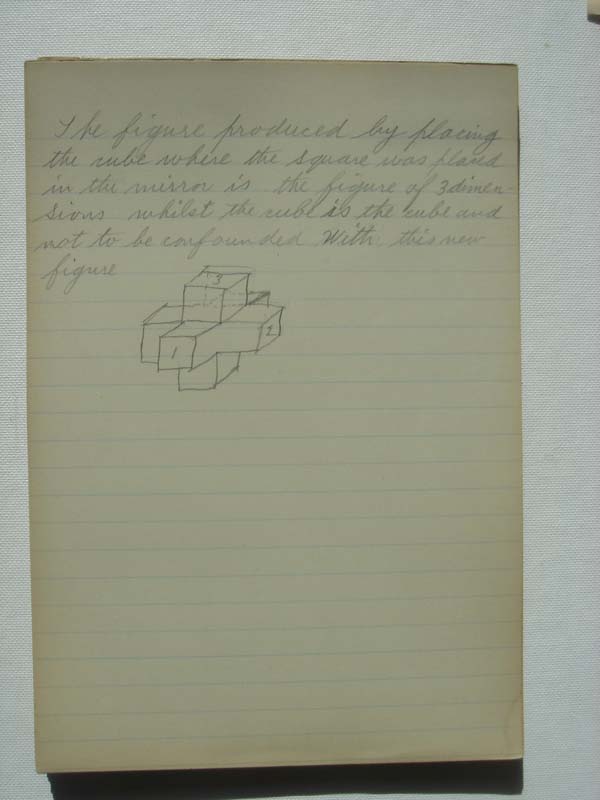 The figure produced by placing
the cube where the square was placed
in the mirror is the figure of 3 dimen-
sions whilst the cube is the cube and
not to be confounded With this new
figure
3
2
1